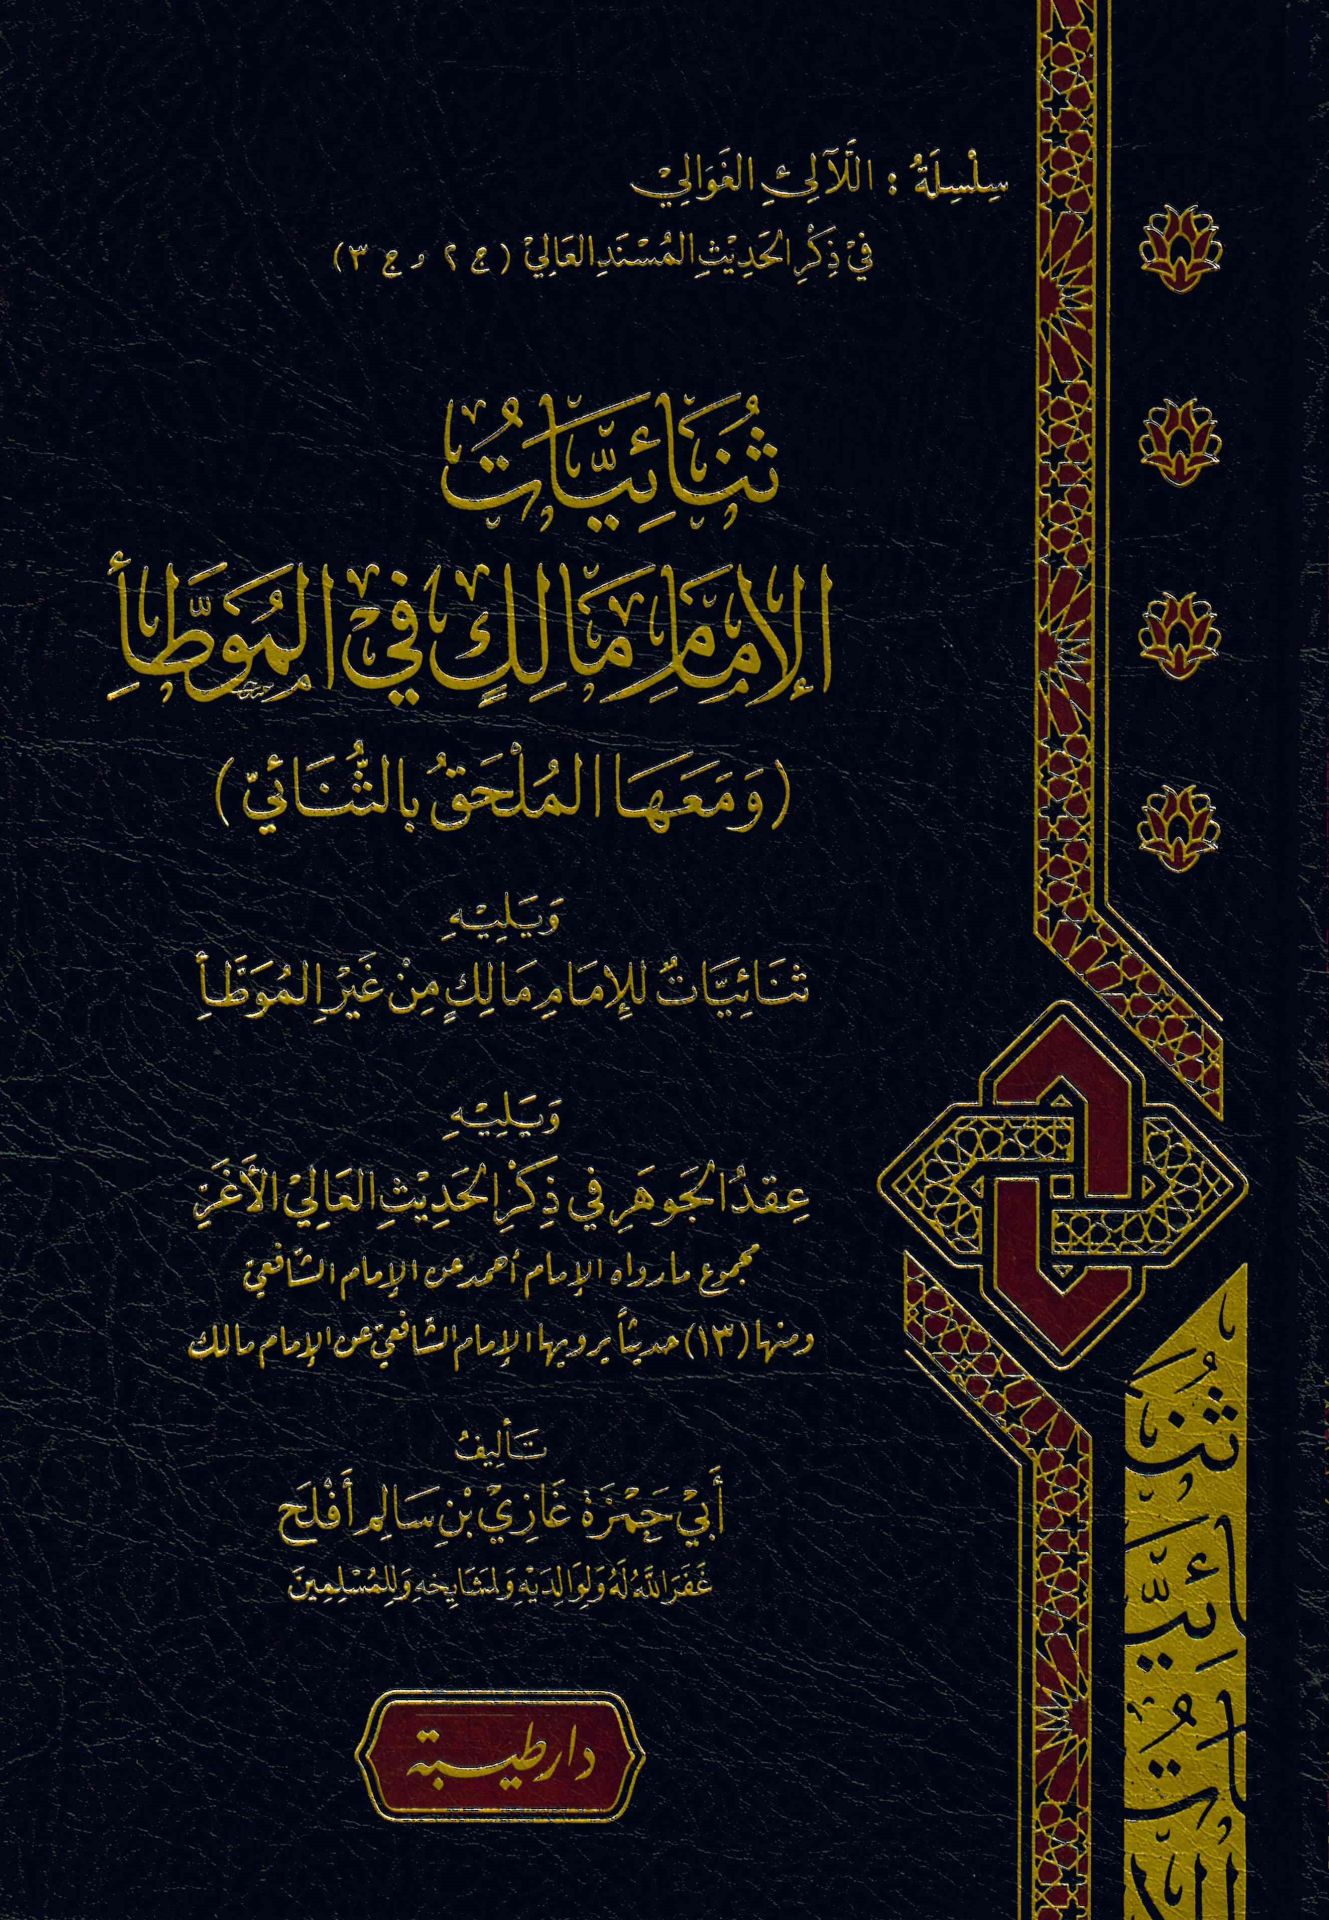 سِلْسِلَةُ : اللَّآلِئِ الغَوَالِيْ
فِيْ ذِكْرِ الحَدِيْثِ المُسْنَدِ العَالِيْ (ج ٢ و ج ٣)
ثُنَائِيَّاتُ
الإِمَامِ مَالِكٍ فِي المُوَطَّأِ
(وَمَعَهَا المُلْحَقُ بِالثُّنَائِيّ)
وَيَلِيْهِ
ثُنَائِيَّاتٌ لِلإِمَامِ مَالِكٍ مِنْ غَيْرِ المُوَطَّأِ
وَيَلِيْهِ
عِقدُ الجَوهَرِ في ذِكْرِ الحَدِيْثِ العَالِيْ الأَغَرِّ
مجموع ما رواه الإمام أحمد عن الإمام الشافعيّ
ومنها (١٣) حديثاً يرويها الإمام الشّافعيّ عن الإمام مالك
تَألِيفُ
أَبِيْ حَمْزَةَ غَازِيْ بْنِ سَالِمِ أَفْلَح
غَفَرَ اللَّهُ لَهُ وَلِوَالِدَيْهِ وَلِمَشَايِخِهِ وَلِلْمُسْلِمِينَ
دار طيبة
ثُنَائِيَّاتُ